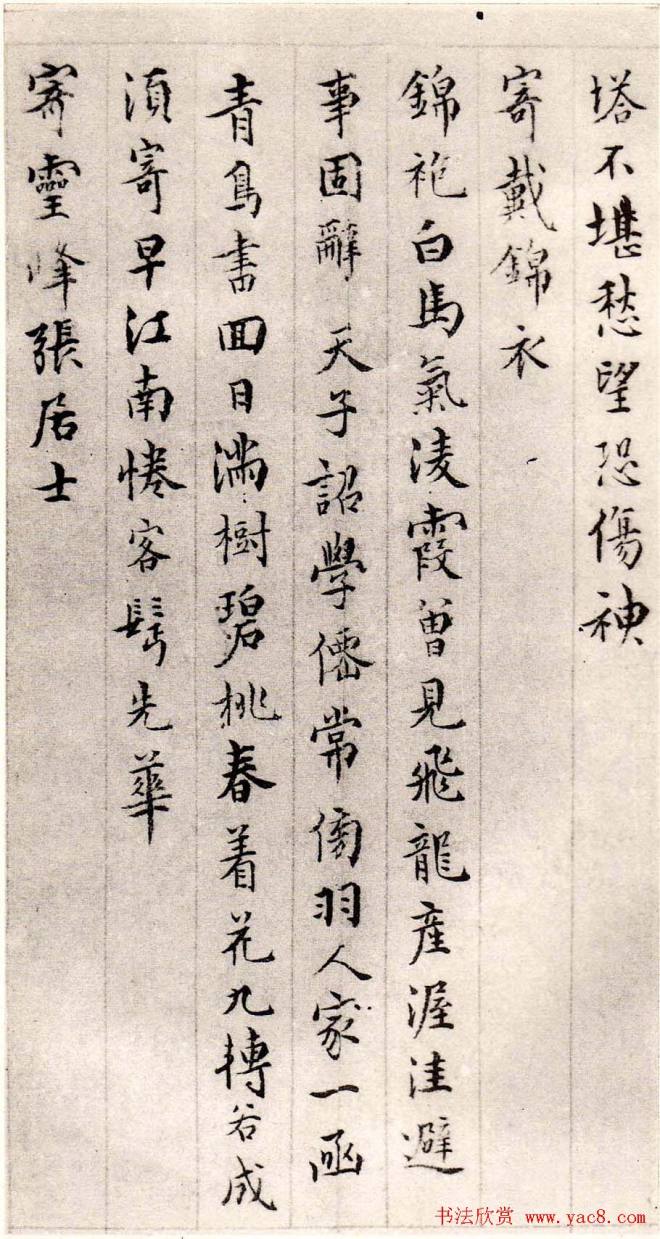 塔不堪愁望恐傷神
寄戴錦衣
錦袍白馬氣凌霞曾見飛龍產渥洼避
事固辭天子詔學僊常傍羽人家一函
青鳥書回日滿樹碧桃春着花九轉若成
須寄早江南倦客鬂先華
寄靈峰張居士
书法欣赏 www.yac8.com